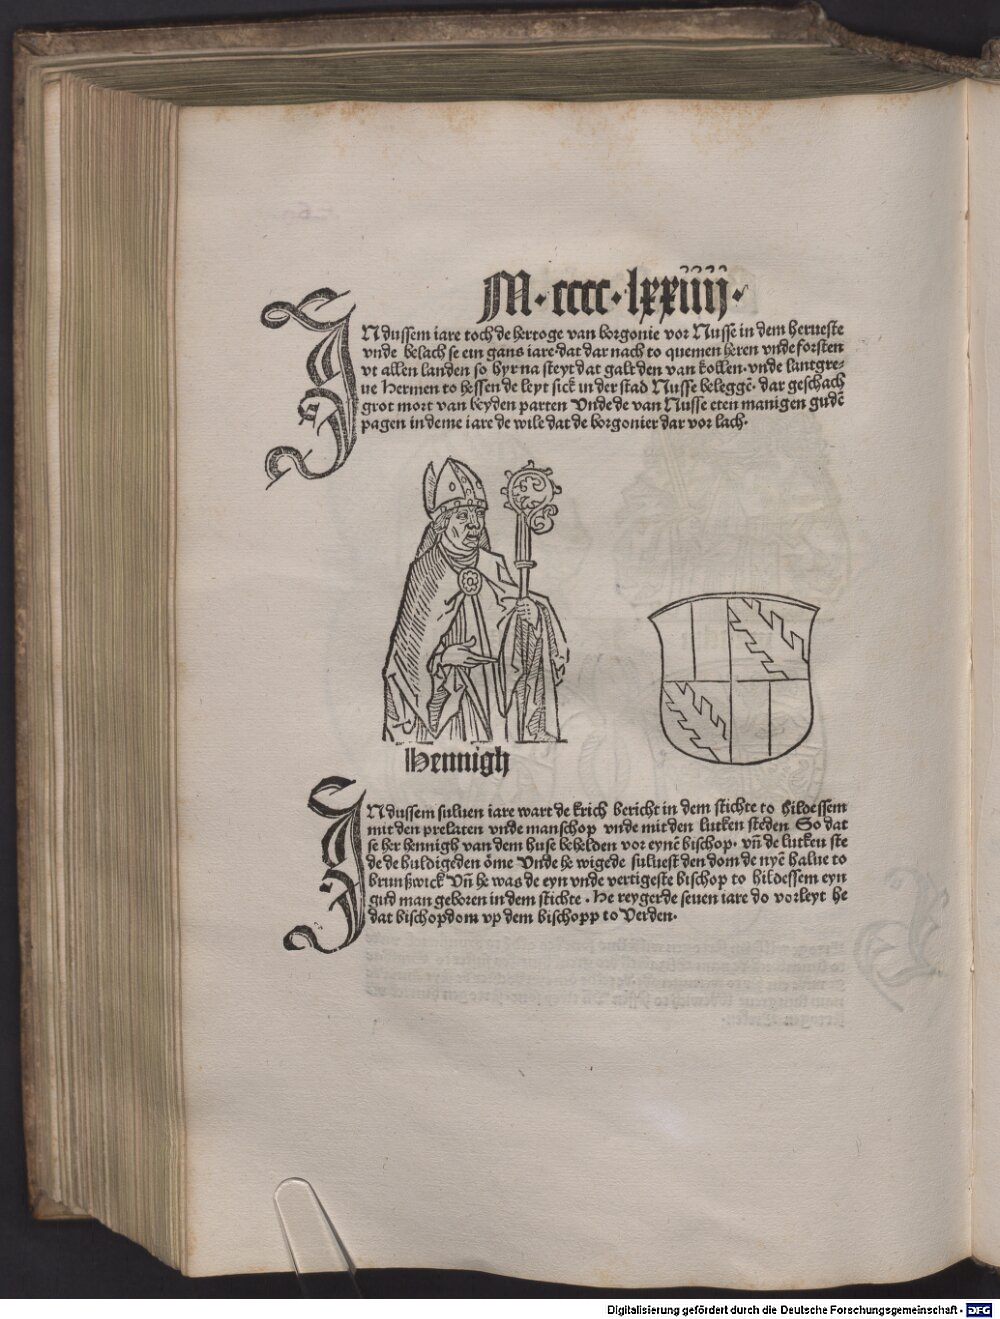 M·cccc·lxxiiij·
INdussem iare toch de hertoge van borgonie vor Nusse in dem herueste
vnde belach se ein gans iare·dat dar nach to quemen heren vnde forsten
vt allen landen so hyr na steyt dat galt den van kollen·vnde lantgre-
ue Hermen to hessen de leyt sick in der stad Nusse beleggē· dar geschach
grot mort van beyden parten Vnde de van Nusse eten manigen gudē
pagen in deme iare de wile dat de borgonier dar vor lach·
Hennigh
INdussem suluen iare wart de krich bericht in dem stichte to hildessem
mit den prelaten vnde manschop vnde mit den lutken steden So dat
se her hennigh van dem huse behelden vor eynē bischop· vn̄ de lutken ste
de de huldigeden ōme Vnde he wigede suluest den dom de nyē halue to
brunßwick Vn̄ he was de eyn vnde vertigeste bischop to hildessem eyn
gud man geboren in dem stichte · He reygerde seuen iare do vorleyt he
dat bischopdom vp dem bischopp to Verden·
Digitalisierung gefördert durch die Deutsche Forschungsgemeinschaft - DFG